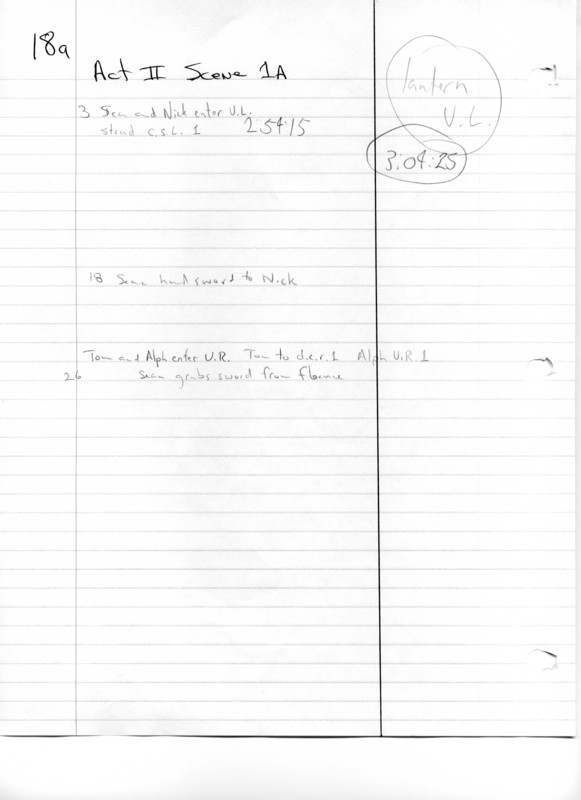 18a
Act II Scene 1A
lantern
U.L.
3 Sean and Nick enter U.L.
stand c.s.L. 1 2:54:15
3:04:25
18 Sean hand sword to Nick
Tom and Alph enter U.R. Tom to d.c.r.1 Alph U.R.1
26 Sean grabs sword from